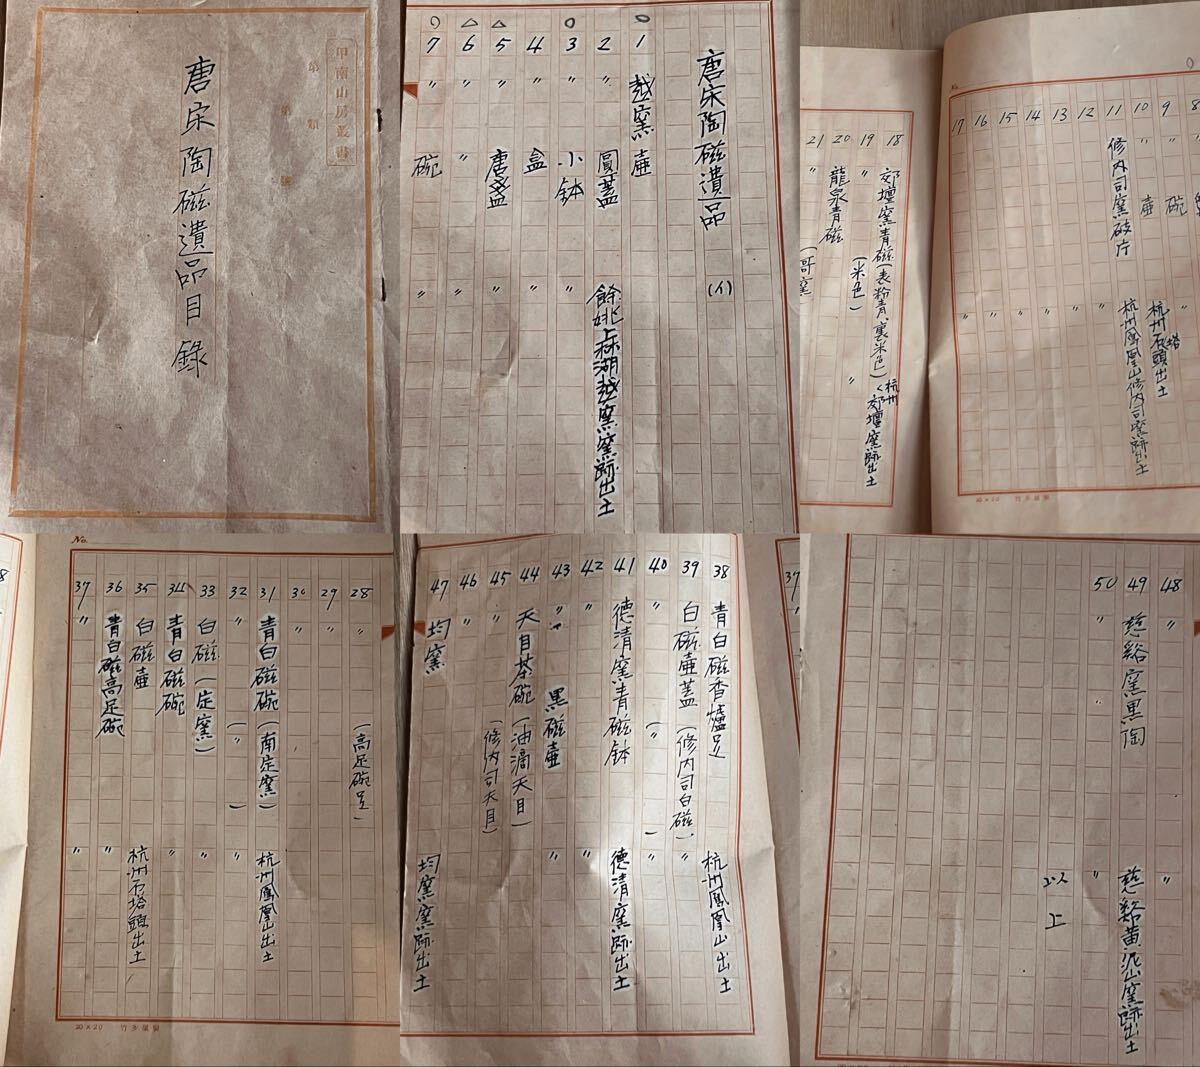 甲南山房叢書
第　類
第　號
唐宋陶磁遺品目錄
唐宋陶磁遺品　(イ)
○ 1 越窯 壺
2 〃 圓蓋 餘姚上林湖越窯窯跡出土
○ 3 〃 小鉢 〃
4 〃 盒 〃
△ 5 〃 唐盞 〃
△ 6 〃 〃 〃
○ 7 〃 碗 〃
No.
8 〃
9 〃 碗 杭州石塔頭出土
10 〃 壺 〃
11 修内司窯破片 杭州鳳凰山修内司窯跡出土
12 〃
13 〃
14 〃
15 〃
16 〃
17 〃
20×20
18 郊壇窯青磁(表粉青、裏米色) 杭州郊壇窯跡出土
19 〃 (米色) 〃
20 龍泉青磁
21 〃 (哥窯
No.
28 〃 (高足碗足) 〃
29 〃
30 〃
31 青白磁碗(南定窯) 杭州鳳凰山出土
32 〃 (〃) 〃
33 白磁(定窯) 〃
34 青白磁碗 〃
35 白磁壺 杭州石塔頭出土
36 青白磁高足碗 〃
37 〃 〃
20×20
37 〃
38 青白磁香爐足 杭州鳳凰山出土
39 白磁壺蓋(修内司白磁) 〃
40 〃 (〃) 〃
41 德清窯青磁鉢 德清窯跡出土
42 〃 〃
43 〃 黒磁壺 〃
44 天目茶碗(油滴天目)
45 〃 (修内司天目)
46 〃
47 均窯 均窯窯跡出土
48 〃 〃
49 慈谿窯黒陶 慈谿黄泥山窯跡出土
50 〃 〃
以上